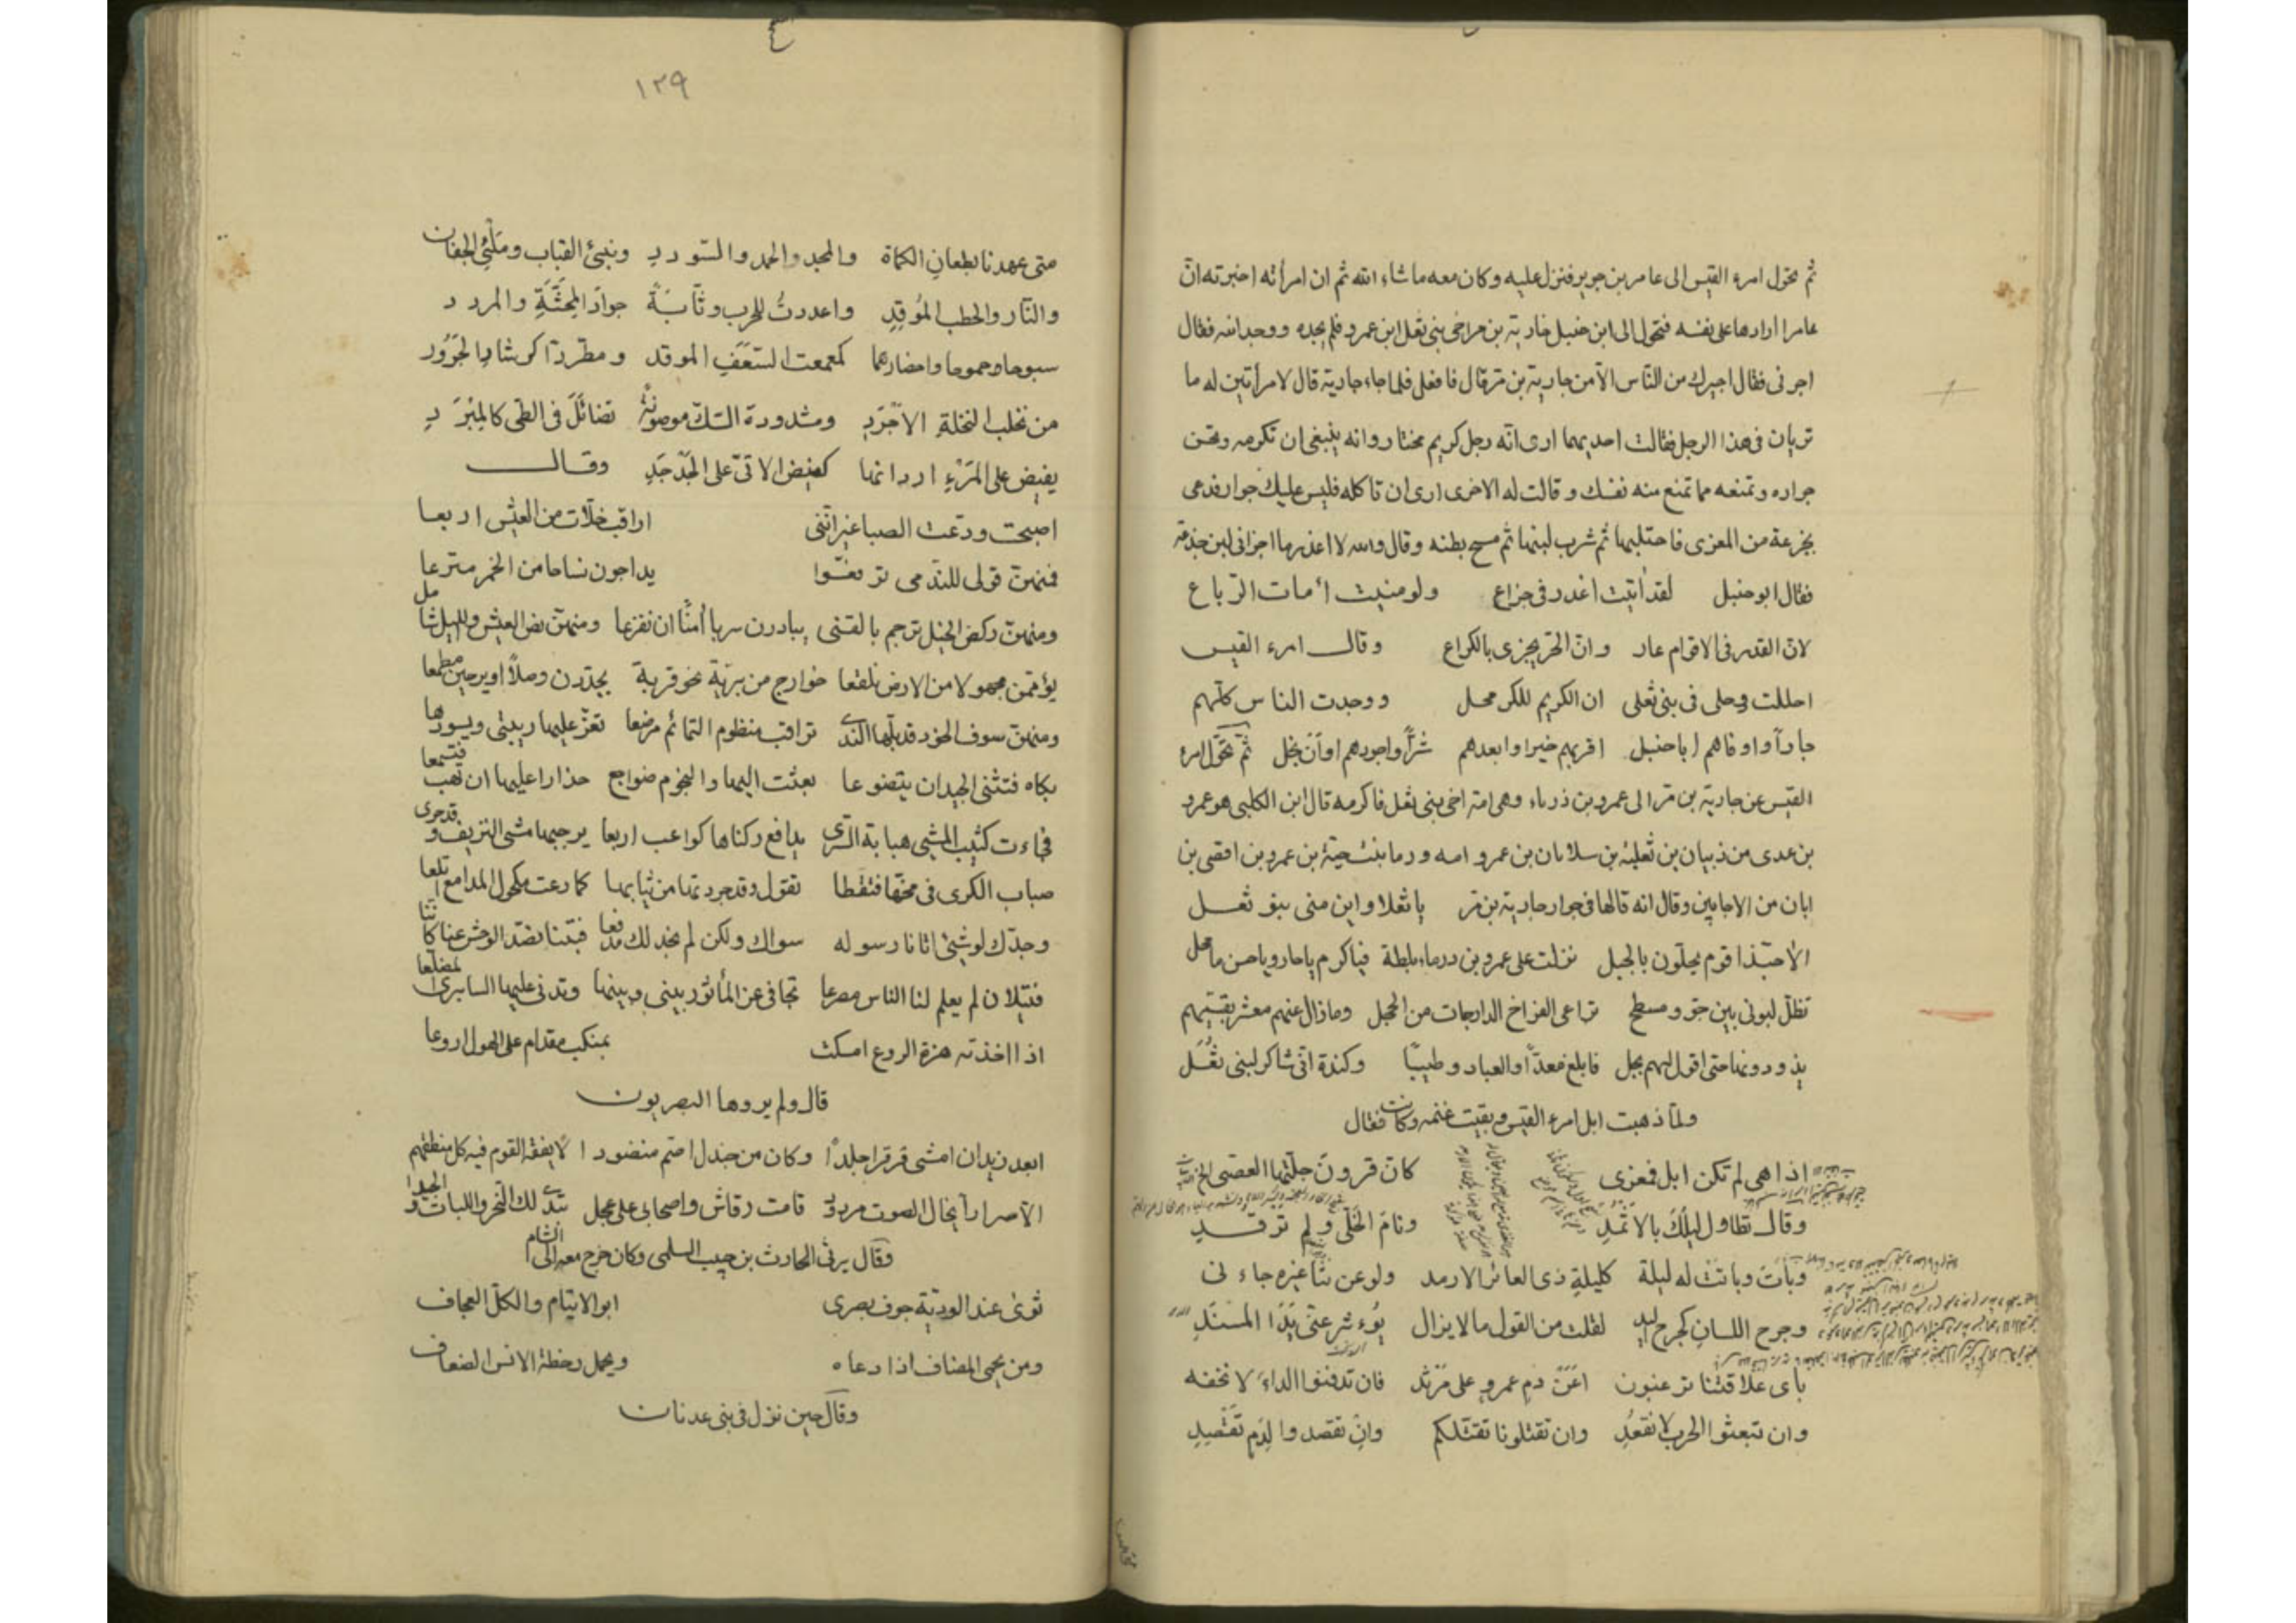 ثم تحول امرء القيس الى عامر بن جوير فنزل عليه وكان معه ماشاء الله ثم ان امرأته اخبرته ان
عامرا ارادها على نفسه فتحول الى ابن حنبل جارية بن مر اخى بنى ثعل ابن عمرو فلم يجده ووجد ابنه فقال
اجرنى فقال اجيرك من الناس الا من جارية بن مر قال فافعل فلما جاء جارية قال لامرأتين له ما
تريان فى هذا الرجل فقالت احديهما ارى انه رجل كريم مختار وانه ينبغى ان تكرمه وتحسن
جواره وتمنعه مما تمنع منه نفسك وقالت له الاخرى ارى ان تاكله فليس عليك جوار فدعى
بجزعة من المعزى فاحتلبها ثم شرب لبنها ثم مسح بطنه وقال والله لا اعذرها اجزانى لبن جذعة
فقال ابو حنبل لقد آتيت اغدر فى جزاع ولو منيت أمات الرباع
لان الغدر فى الاقوام عار وان الحر يجزى بالكراع وقال امرء القيس
احللت رحلى فى بنى ثعلى ان الكريم للكريم محل ووجدت الناس كلهم
جارا واوفاهم ابا حنبل اقربهم خيرا وابعدهم شرا واجودهم اوان بخل ثم تحول امرء
القيس عن جارية بن مر الى عمرو بن درماء وهى امه اخى بنى ثعل فاكرمه قال ابن الكلبى هو عمرو
بن عدى من ذبيان بن ثعلبة بن سلامان بن عمرو امه ودرما بنت حية بن عمرو بن افصى بن
ابان من الاجايين وقال انه قالها فى جوار جارية بن مر يا ثعلا واين منى بنو ثعل
الا حبذا قوم يحلون بالجبل نزلت على عمرو بن درماء بلطة فيا كرم يا جار ويا حسن ما محل
تظل لبونى بين جو ومسطح تراعى الفراخ الدارجات من الحجل وما زال عنهم معشر بقسيهم
يذودونها حتى اقول لهم بجل فابلغ معدا والعباد وطيبا وكندة انى شاكر لبنى ثعل
ولما ذهبت ابل امرء القيس وبقيت غنمه وكانت فقال
اذا هى لم تكن ابل فمعزى كان قرون جلتها العصى الخ
وقال تطاول ليلك بالاثمد ونام الخلى ولم ترقد
وبات وباتت له ليلة كليلة ذى العائر الارمد ولو عن نثا غيره جاءنى
وجرح اللسان كجرح اليد لقلت من القول ما لا يزال يؤثر عنى يد المسند
باى علاقتنا ترغبون اعن دم عمرو على مرثد فان تدفنوا الداء لا نخفه
وان تبعثوا الحرب لا نقعد وان تقتلونا نقتلكم وان تقصدوا لدم نقصد
١٣٩
متى عهدنا بطعان الكماة والمجد والحمد والسودد وبنى القباب وملئ الجفان
والنار والحطب الموقد واعددت للحرب وثابة جواد المحثة والمرود
سبوحا وجموحا واحضارها كمعمعت السعف الموقد ومطردا كرشاء الجرور
من خلب النخلة الاجرد ومشدودة السك موضونة تضائل فى الطى كالمبرد
يفيض على المرء اردانها كفيض الاتى على الجدجد وقال
اصبحت ودعت الصبا غير اننى اراقب خلات من العيش اربعا
فمنهن قولى للندمى ترفعوا يداجون نساحا من الخمر مترعا
ومنهن ركض الخيل ترجم بالقنى يبادرن سربا آمنا ان تفزعا ومنهن نص العيش والليل شامل
يؤممن مجهولا من الارض بلقعا خوارج من برية نحو قرية يجددن وصلا او يرجين مطمعا
ومنهن سوف الخود قد بلها الندى تراقب منظوم التمائم مرضعا تعز عليها ريبتى ويسوءها
بكاه فتثنى الجيد ان يتضوعا بعثت اليها والنجوم ضواجع حذارا عليها ان تهب فتسمعا
فجاءت كثيب المشى هيابة السرى يدافع ركناها كواعب اربعا يزجيها مشى النزيف وقد جرى
صباب الكرى فى مخها فتقطا تقول وقد جردتها من ثيابها كما رعت مكحول المدامع اتلعا
وجدك لو شيئ اتانا رسوله سواك ولكن لم نجد لك مدفعا فبتنا نصد الوحش عنا كاننا
قتيلان لم يعلم لنا الناس مصرعا تجافى عن المأثور بينى وبينها وتدنى عليها السابرى المضلعا
اذا اخذته هزة الروع امسكت بمنكب مقدام على الهول اروعا
قال ولم يروها البصريون
ابعد زيدان امشى قرقرا جلدا وكان من جندل اصم منضودا لا يفقه القوم فيه كل منطقهم
الا سرارا تخال الصوت مردودا قامت رقاش واصحابى على عجل تبدى لك النحر واللبات والجيدا
وقال يرثى الحارث بن حبيب السلمى وكان خرج معه الى الشام
ثوى عند الودية جوف بصرى ابو الايتام والكل العجاف
ومن يحمى المضاف اذا دعاه ويحمل خطة الانس الضعاف
وقال حين نزل فى بنى عدنان